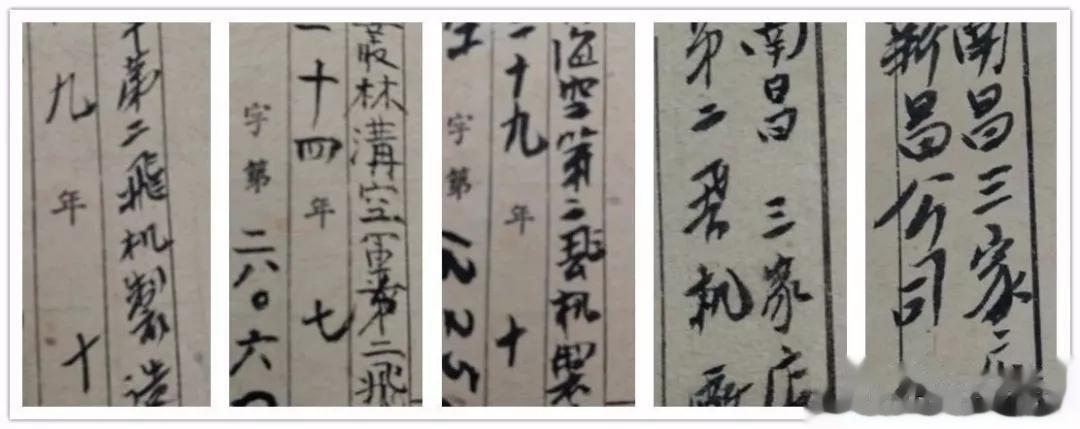 第二飛机製造
九年十
叢林溝空軍第二飛
十四年七
字第二八〇六〇
空第二飛机製
十九年十
字第
南昌三家店
第二飛机
南昌三家店
新昌公司